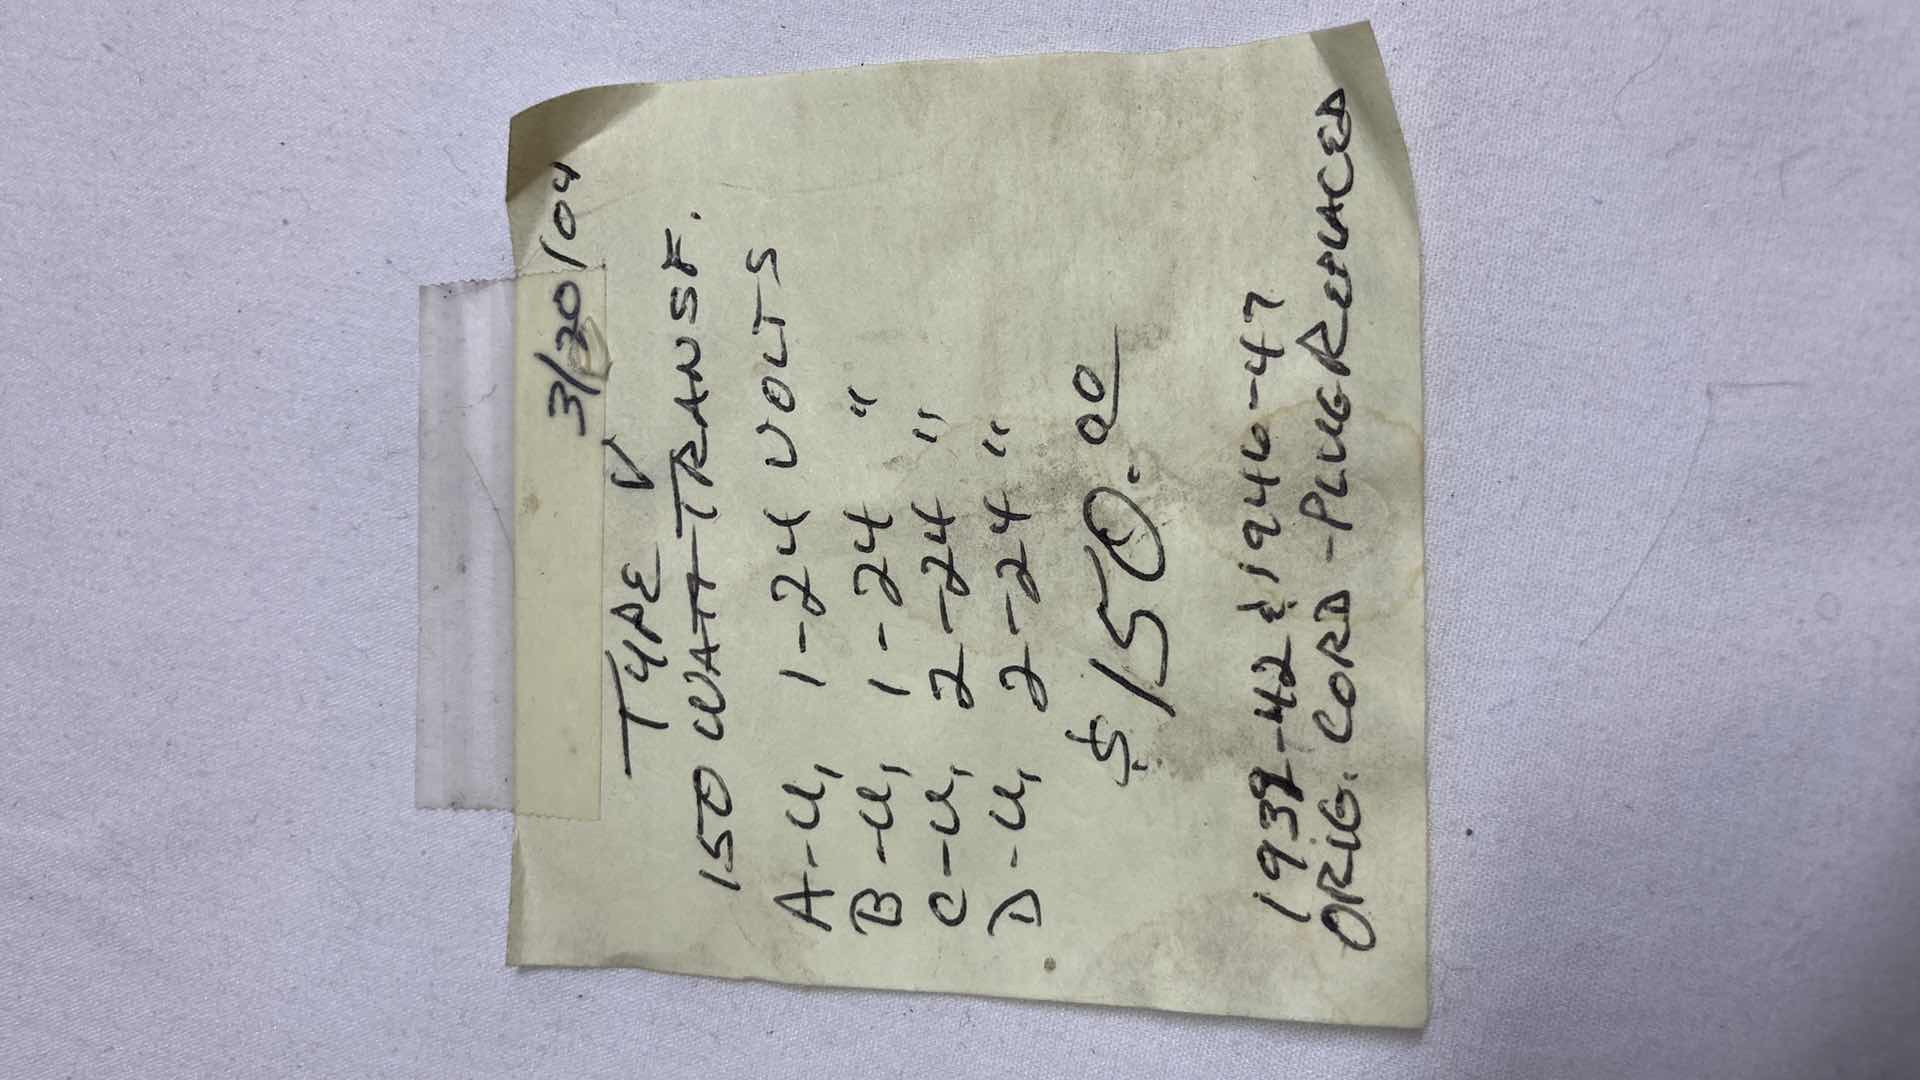 3/20/04
TYPE V
150 WATT TRANSF.
A-U, 1-24 VOLTS
B-U, 1-24 "
C-U, 2-24 "
D-U, 2-24 "
$150.00
1939-42 & 1946-47
ORIG. CORD - PLUG REPLACED